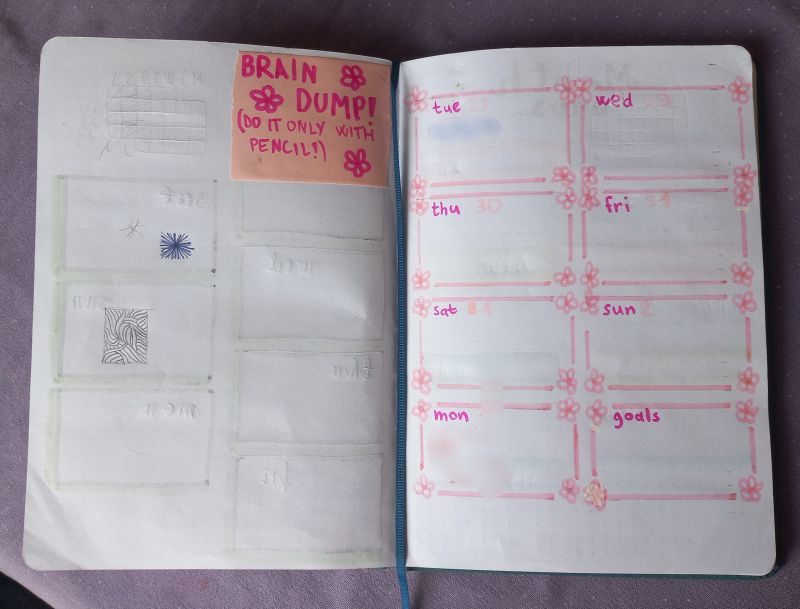 BRAIN
DUMP!
(DO IT ONLY WITH
PENCIL!)
tue 28
wed 29
thu 30
fri 31
sat 1
sun 2
mon
goals